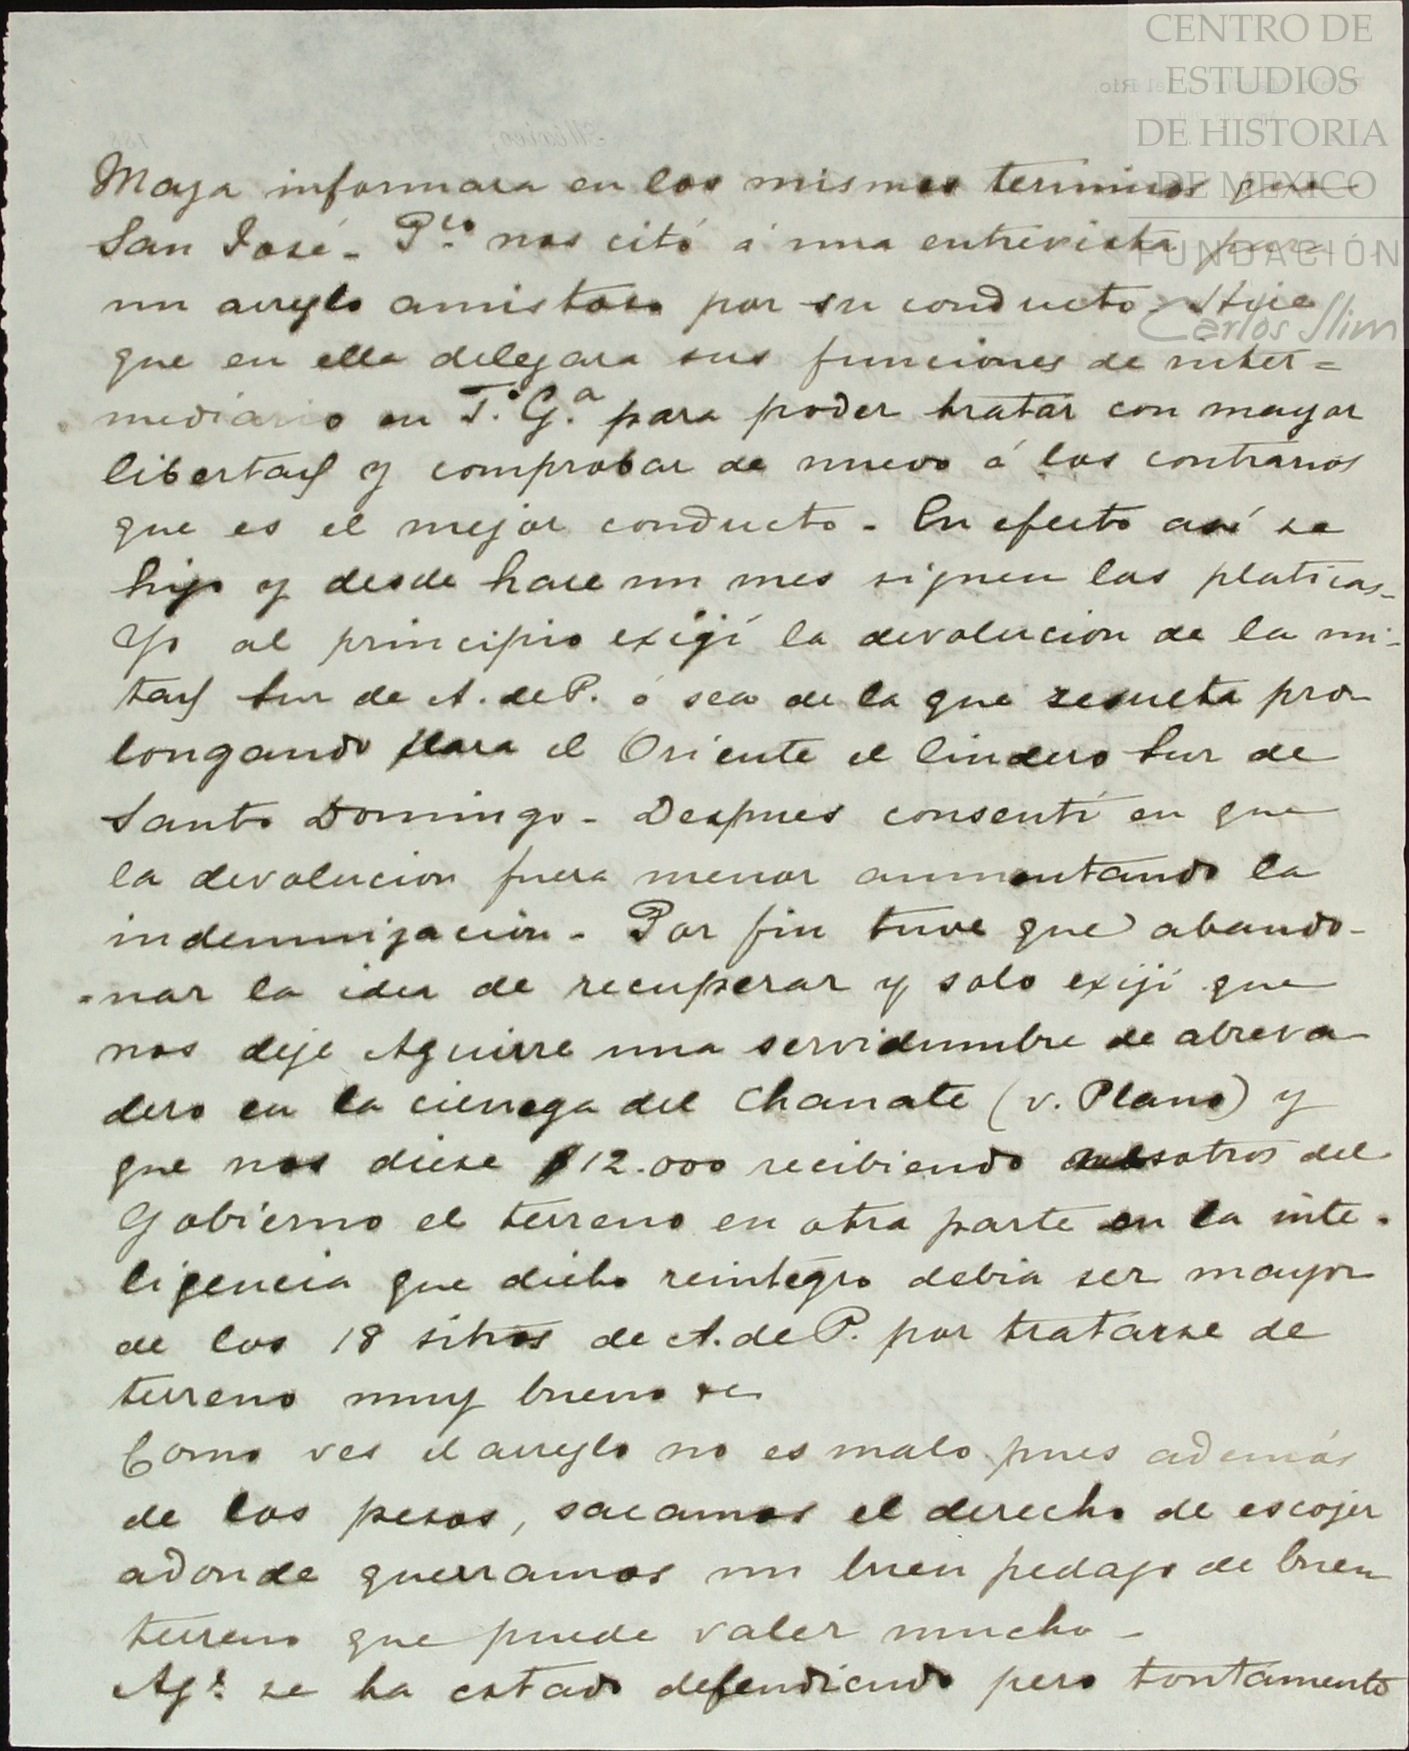 CENTRO DE
ESTUDIOS
DE HISTORIA
DE MEXICO
FUNDACIÓN
Carlos Slim
Maza informara en los mismos terminos que
San José - P.co nos citó á una entrevista para
un arreglo amistoso por su conducto - Hice
que en ella delegara sus funciones de inter=
mediario en T. G.a para poder tratar con mayor
libertad y comprobar de nuevo á los contrarios
que es el mejor conducto - En efecto así se
hizo y desde hace un mes siguen las platicas -
Yo al principio exigí la devolucion de la mi-
tad Sur de A. de P. ó sea de la que resulta pro-
longando para el Oriente el lindero Sur de
Santo Domingo - Despues consentí en que
la devolucion fuera menor aumentando la
indemnizacion - Por fin tuve que abando-
nar la idea de recuperar y solo exijí que
nos deje Aguirre una servidumbre de abreva-
dero en la cienega del Chanate (v. Plano) y
que nos diese $12.000 recibiendo nosotros del
Gobierno el terreno en otra parte en la inte-
ligencia que dicho reintegro debia ser mayor
de los 18 sitios de A. de P. por tratarse de
terreno muy bueno
Como ves el arreglo no es malo pues además
de los pesos, sacamos el derecho de escojer
adonde querramos un buen pedazo de buen
terreno que puede valer mucho -
Ag.e se ha estado defendiendo pero tontamente